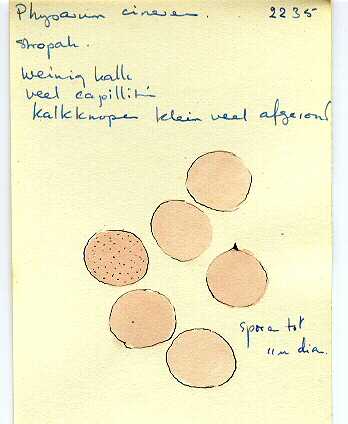 Physarum cinereum. 2235
stropak.
weinig kalk
veel capillitii
kalkknopen klein veel afgerond
spora tot
11 u dia.